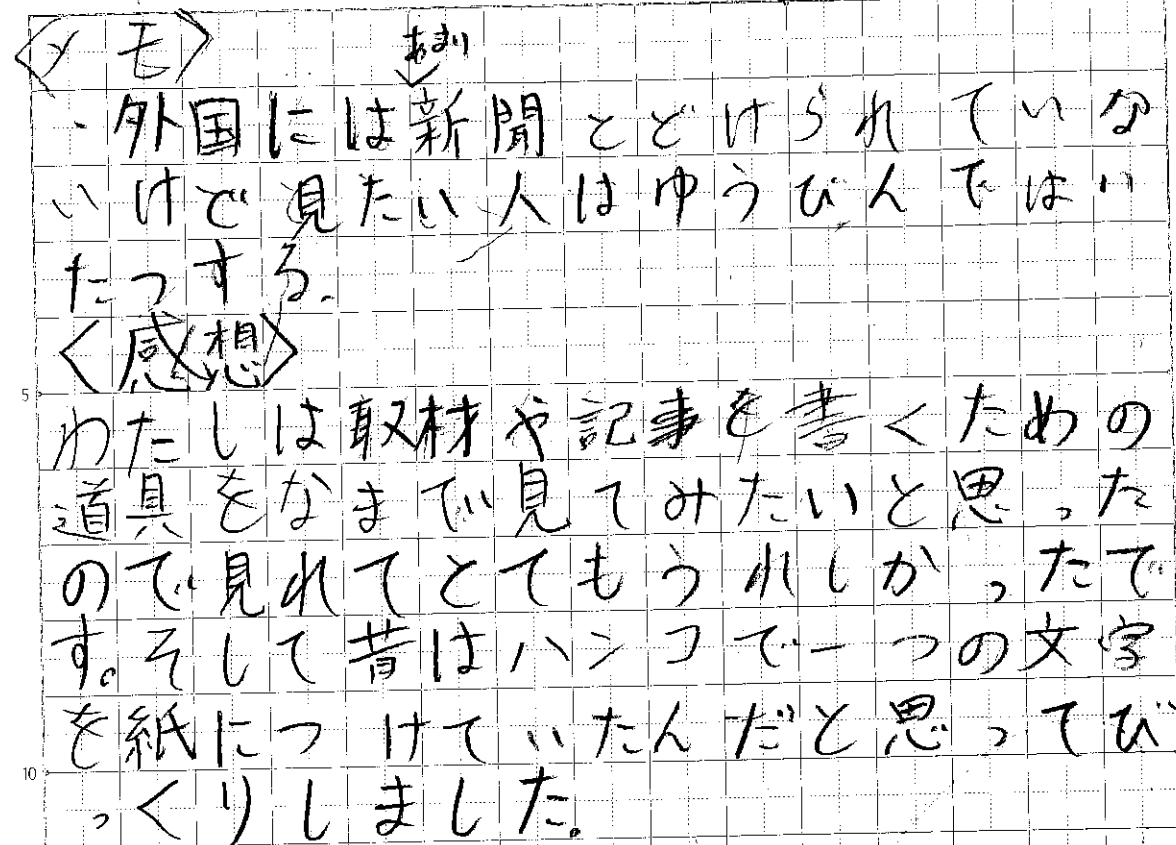 〈メモ〉
あまり
・外国には新聞とどけられていな
いけど見たい人はゆうびんではい
たつする.
〈感想〉
5
わたしは取材や記事を書くための
道具をなまで見てみたいと思った
ので見れてとてもうれしかったで
す。そして昔はハンコで一つの文字
を紙につけていたんだと思ってび
10
っくりしました。